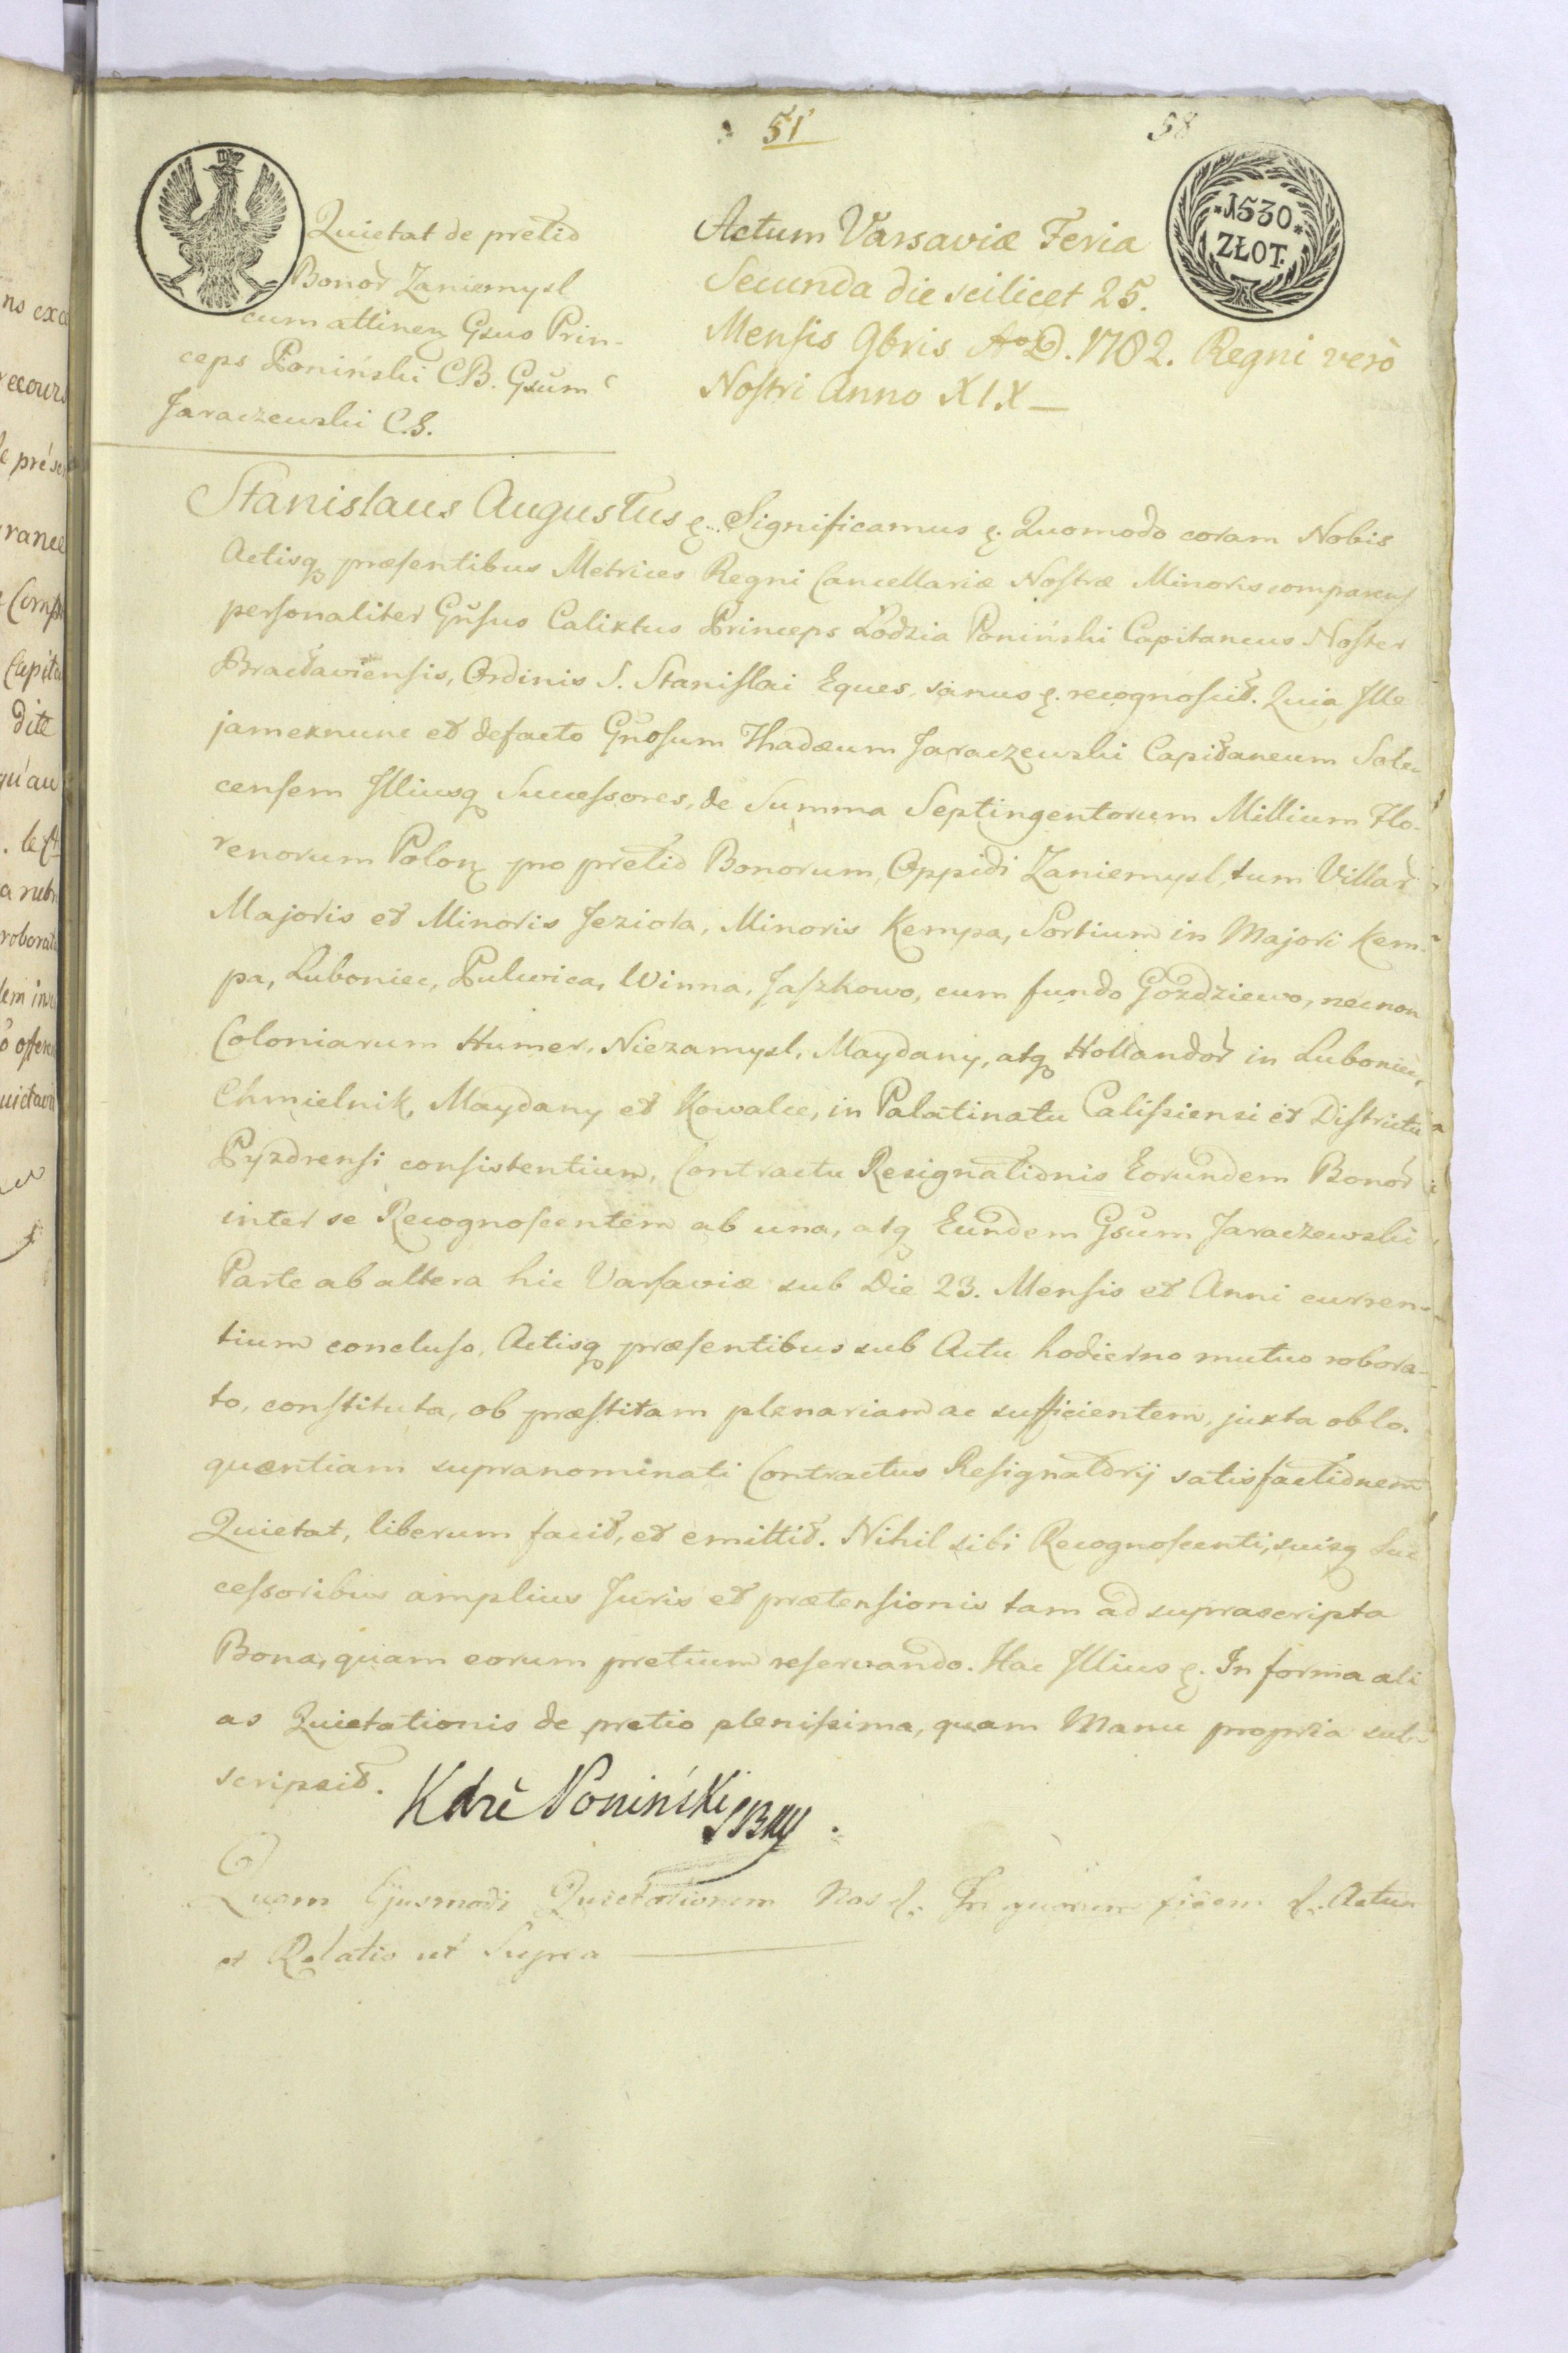 51
58
Quietat de pretio
Bonor Zaniemysl
cum attinen Gsus Prin-
ceps Poniński C.B. Gsum
Jaraczewski C.S.
Actum Varsaviæ Feria
Secunda die scilicet 25.
Mensis 9bris Ao D. 1782. Regni verò
Nostri Anno XIX —
*1530*
ZŁOT.
Stanislaus Augustus &. Significamus &. Quomodo coram Nobis
Actisq præsentibus Metrices Regni Cancellariæ Nostræ Minoris comparens
personaliter Gnsus Calixtus Princeps Łodzia Poniński Capitaneus Noster
Bracłaviensis, Ordinis S. Stanislai Eques, sanus &. recognoscit. Quia Ille
jamexnunc et defacto Gnosum Thadæum Jaraczewski Capitaneum Sole
censem Illiusq Successores, de Summa Septingentorum Millium Flo-
renorum Polon pro pretio Bonorum, Oppidi Zaniemysl, tum Villar
Majoris et Minoris Jeziora, Minoris Kempa, Sortium in Majori Kem-
pa, Luboniec, Pulwica, Winna, Jaszkowo, cum fundo Gozdziewo, necnon
Coloniarum Humer, Niezamysl, Maydany, atq Hollandor in Luboniec,
Chmielnik, Maydany et Kowalec, in Palatinatu Calissiensi et Districtu
Pyzdrensi consistentium, Contractu Resignationis Eorundem Bonor
inter se Recognoscentem ab una, atq Eundem Gsum Jaraczewski
Parte ab altera hic Varsaviæ sub Die 23. Mensis et Anni curren-
tium concluso, Actisq præsentibus sub Actu hodierno mutuo robora-
to, constituta, ob præstitam plenariam ac sufficientem, juxta oblo-
quentiam supranominati Contractus Resignatorij satisfactionem
Quietat, liberum facit, et emittit. Nihil sibi Recognoscenti, suisq Suc
cessoribus amplius Juris et prætensionis tam ad suprascripta
Bona, quam eorum pretium reservando. Hac Illius &. In forma ali
as Quietationis de pretio plenissima, quam Manu propria sub-
scripsit.
Poniński SBmp.
Quam Ejusmodi Quietationem Nos &. In quorum fidem &. Actum
et Relatio ut Supra